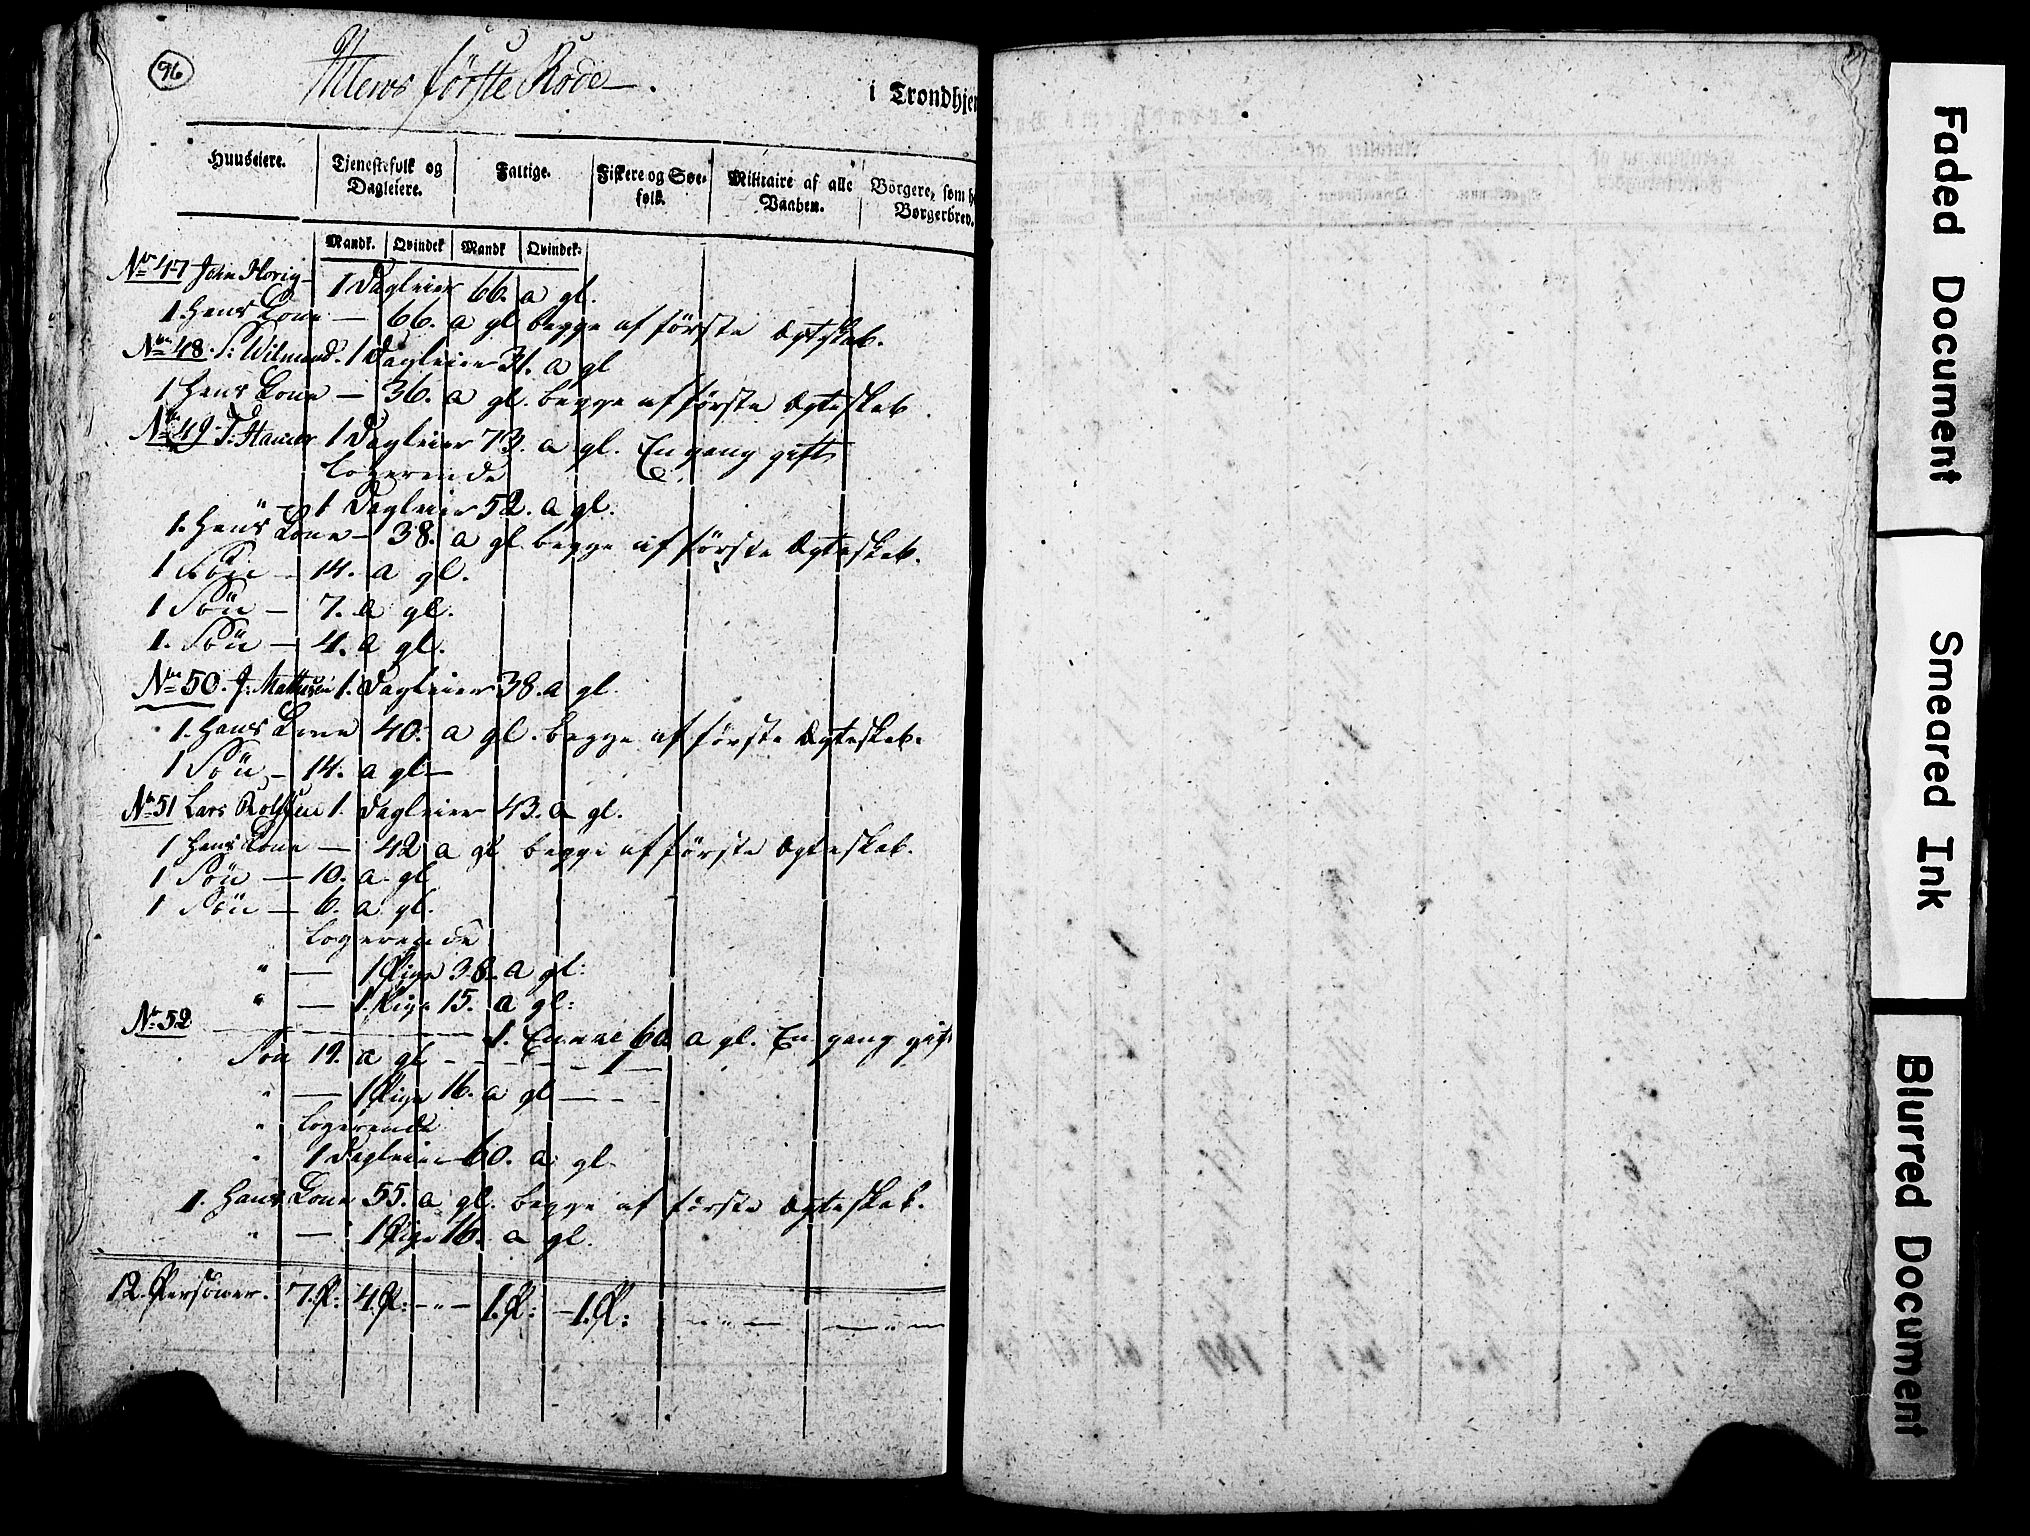 96
Ihlens første Rode.
i Trondhjem
Huuseiere.
Tjenestefolk og Dagleiere.
Fattige.
Fiskere og Søefolk.
Militaire af alle Vaaben.
Borgere, som h
Borgerbrev.
Mandk. Qvindek Mandk Qvindek:
No 47 John Florig 1 Dagleier 66. a gl.
1. Hans Kone — 66. a gl begge af første Ægteskab.
No 48. P: Wilmand. 1 Dagleier 31. a gl
1 Hans Kone — 36. a gl. begge af første Ægteskab.
No 49 1 Dagleier 73. a gl. En gang gift
Logerende
" — 1 Dagleier 52. a gl.
1. Hans Kone — 38. a gl begge af første Ægteskab.
1 Søn — 14. a gl.
1 Søn — 7. a gl.
1. Søn — 4. a gl.
No 50. J: Mathisen 1. Dagleier 38. a gl.
1. Hans Kone 40. a gl. begge af første Ægteskab.
1 Søn — 14. a gl —
No 51 Lars Rolfsen 1. Dagleier 43. a gl.
1 Hans Kone — 42 a gl begge af første Ægteskab.
1 Søn — 10. a gl
1 Søn — 6. a gl.
Logerende
" — 1 Pige 38. a gl:
" — 1. Pige 15. a gl:
No 52 — 1. Enke 60 a gl. En gang gift
Søn 19. a gl — 1 —
" — 1 Pige 16. a gl — — -
" Logerende
" 1 Dagleier 60. a gl.
1. Hans Kone 55. a gl. begge af første Ægteskab.
" — 1 Pige 16. a gl.
12. Personer. 7. P: 4 P: — " — 1. P: — 1. P: — " — — " —
Faded Document
Smeared Ink
Blurred Document